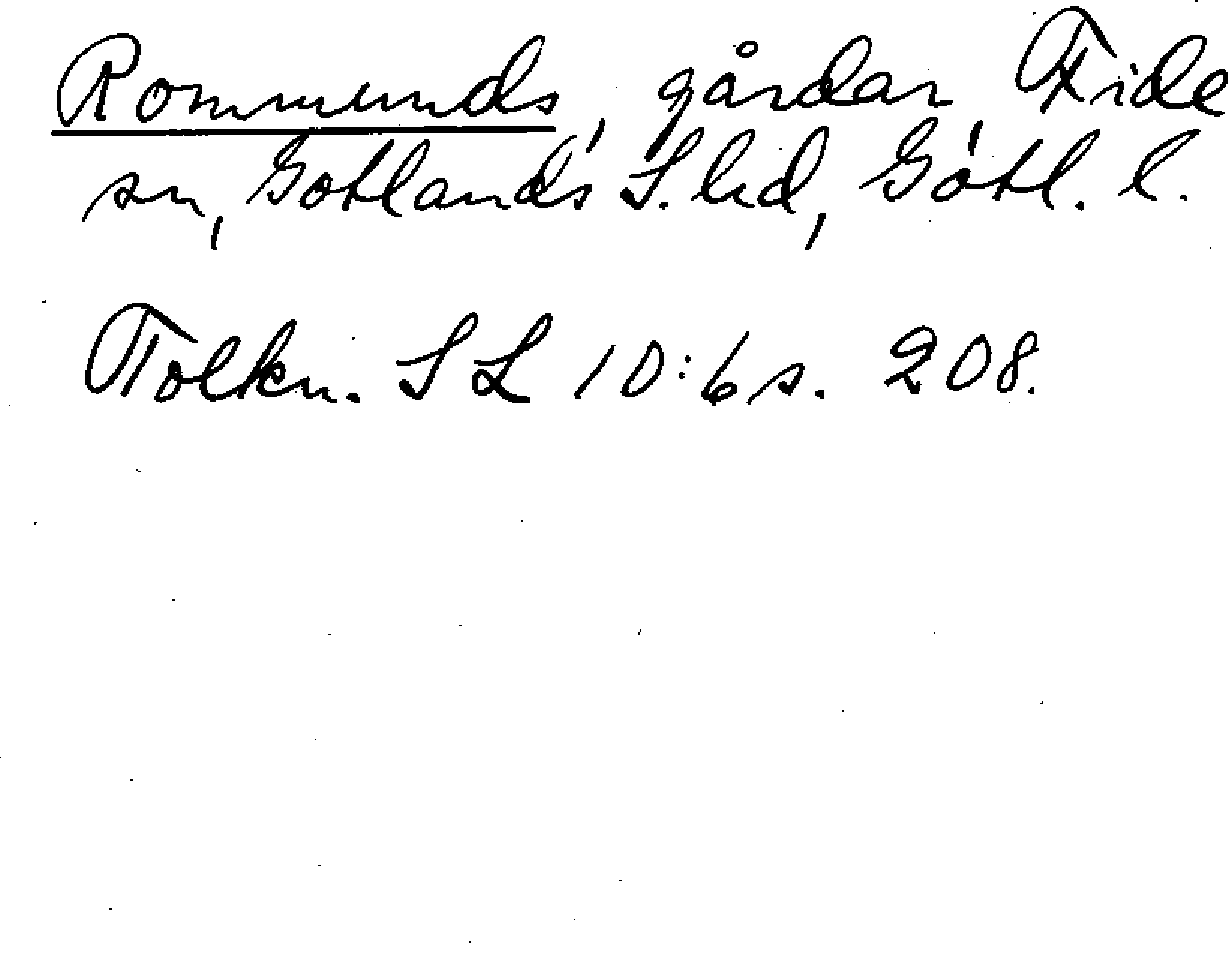 Rommunds, gårdar, Fide
sn, Gotlands S. hd, Gotl. l.
Tolkn. SL 10:6 s. 208.